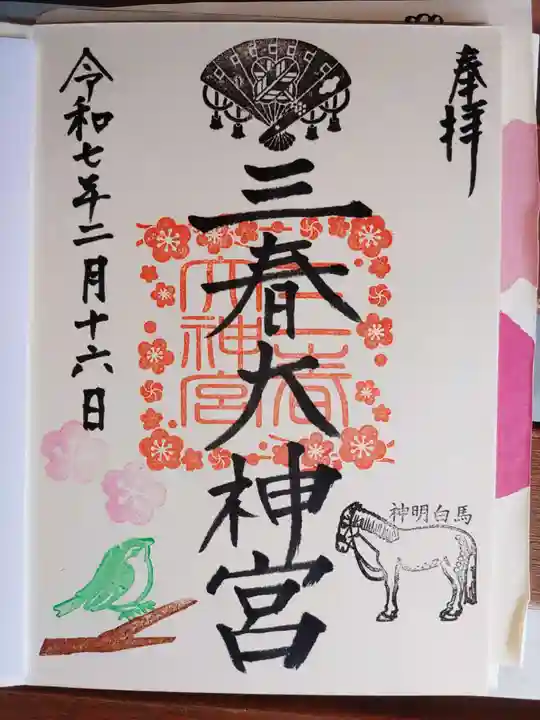 奉拝
三春大神宮
令和七年二月十六日
三春
大神宮
神明白馬